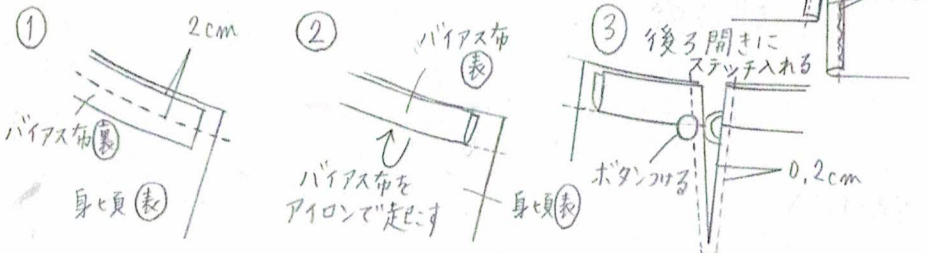 ①
2cm
バイアス布裏
身ヒ頃表
②
バイアス布
表
バイアス布を
アイロンで起こす
身ヒ頃表
③
後ろ開きに
ステッチ入れる
ボタンつける
0.2cm